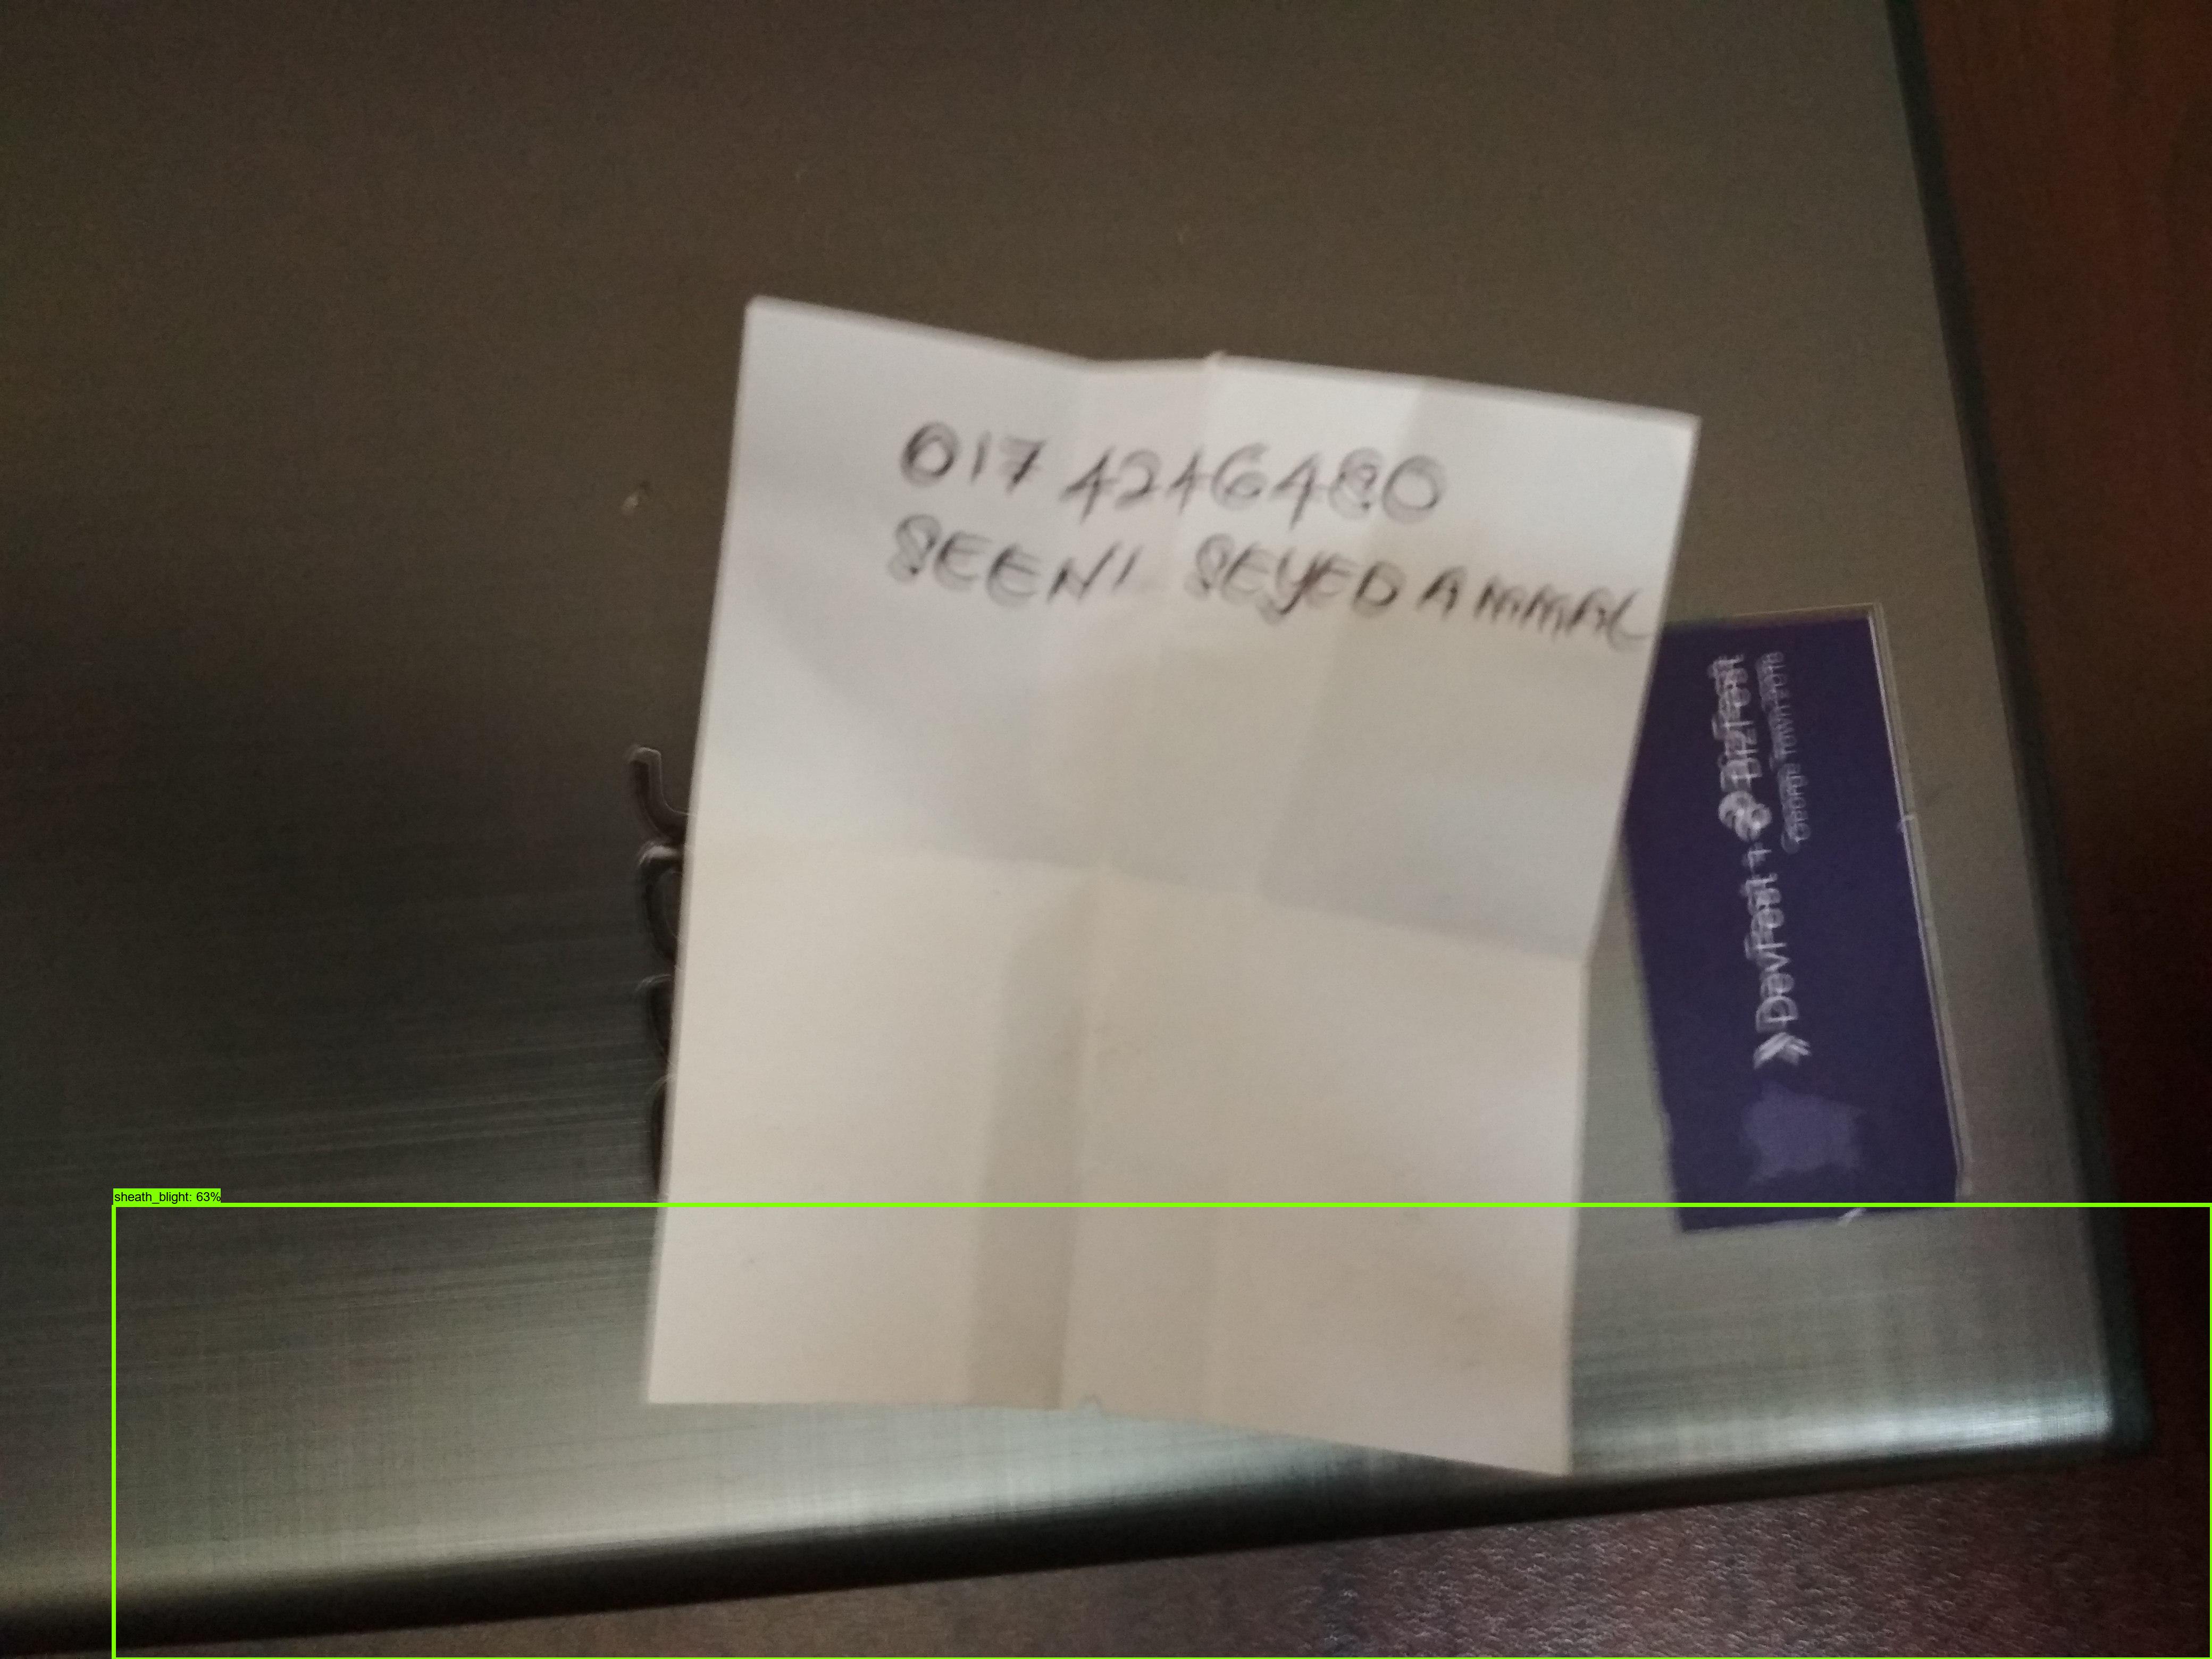 017 4246480
SEENI SEYED AMMAL
DevFest + BizFest
George Town 2018
sheath_blight: 63%